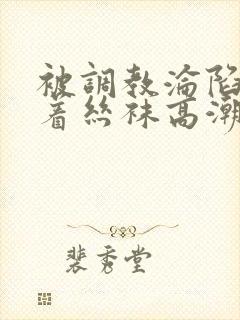 被調教淪陷
着絲袜高潮
裴秀堂